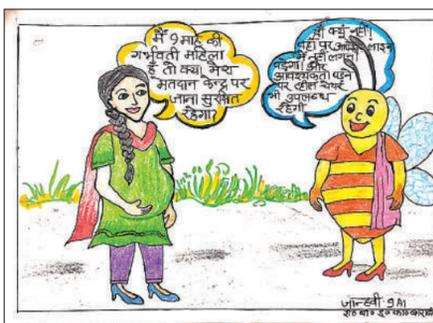 मैं 9 माह की
गर्भवती महिला
हूँ तो क्या मेरा
मतदान केन्द्र पर
जाना सुरक्षित
रहेगा?
हाँ क्यों नहीं!
वहाँ पर आपको लाइन
में नहीं लगना
पड़ेगा। और
आवश्यकता पड़ने
पर व्हील चेयर
भी उपलब्ध
रहेगी
जान्हवी-9A1